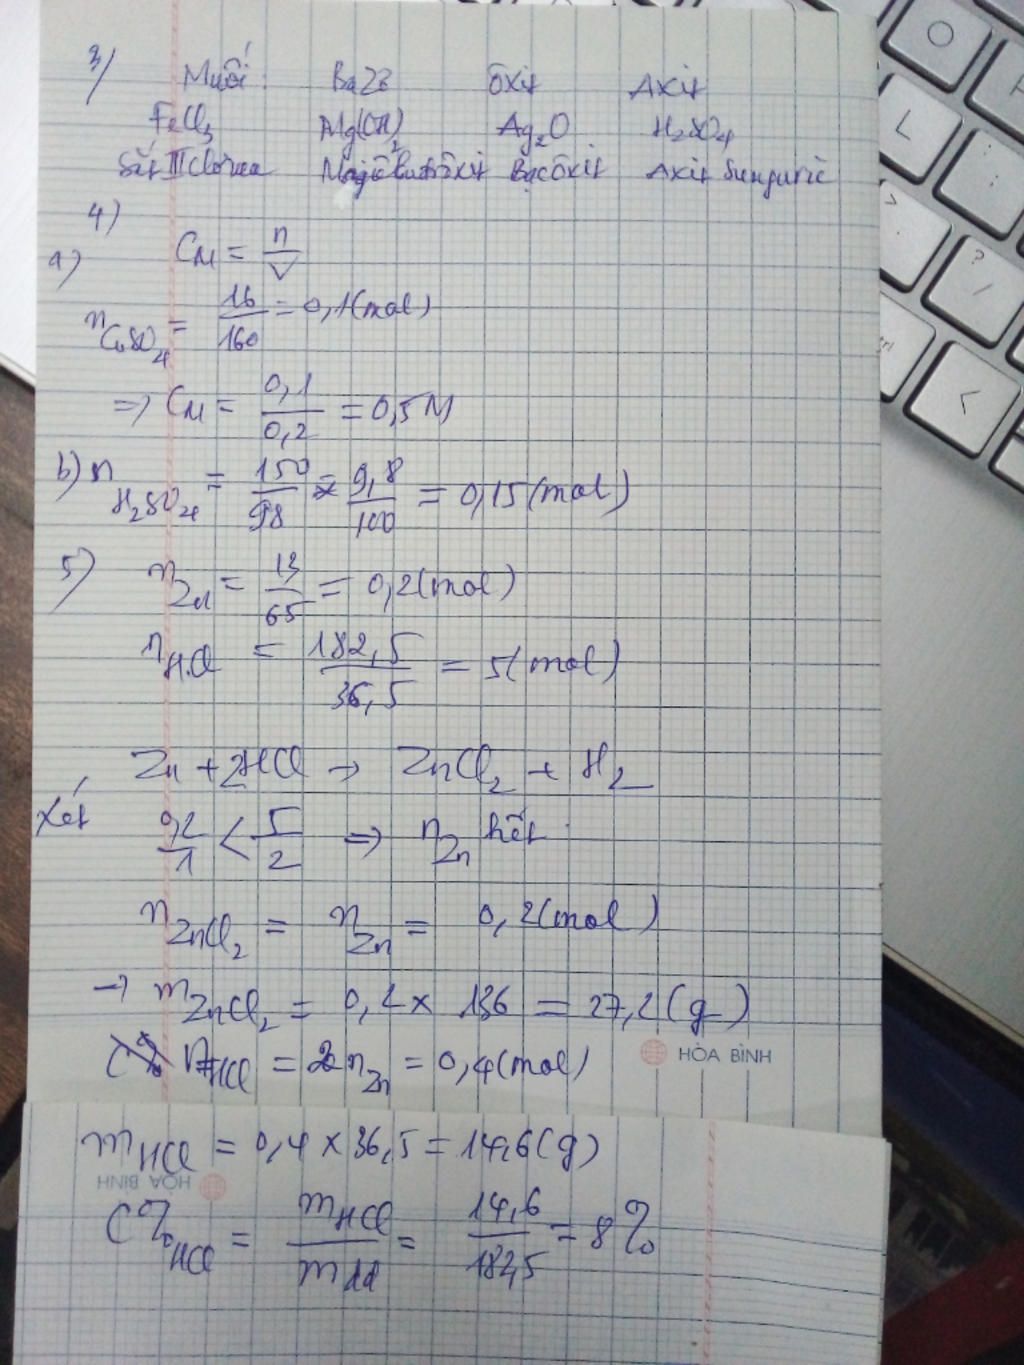 3) Muối: Bazơ Oxit Axit
FeCl3 Mg(OH)2 Ag2O H2SO4
Sắt III Clorua Bạc Oxit Axit Sunguric
4)
a) CM = n/V
nCuSO4 = 16/160 = 0,1(mol)
=> CM = 0,1/0,2 = 0,5M
b) nH2SO4 = 150/98 × 9,8/100 = 0,15(mol)
5) nZn = 13/65 = 0,2(mol)
nHCl = 182,5/36,5 = 5(mol)
Zn + 2HCl → ZnCl2 + H2
Xét 0,2/1 < 5/2 => nZn hết.
nZnCl2 = nZn = 0,2(mol)
→ mZnCl2 = 0,2 × 136 = 27,2(g)
C% nHCl = 2nZn = 0,4(mol)
HÒA BÌNH
mHCl = 0,4 × 36,5 = 14,6(g)
HÒA BÌNH
C%HCl = mHCl/mdd = 14,6/182,5 = 8%